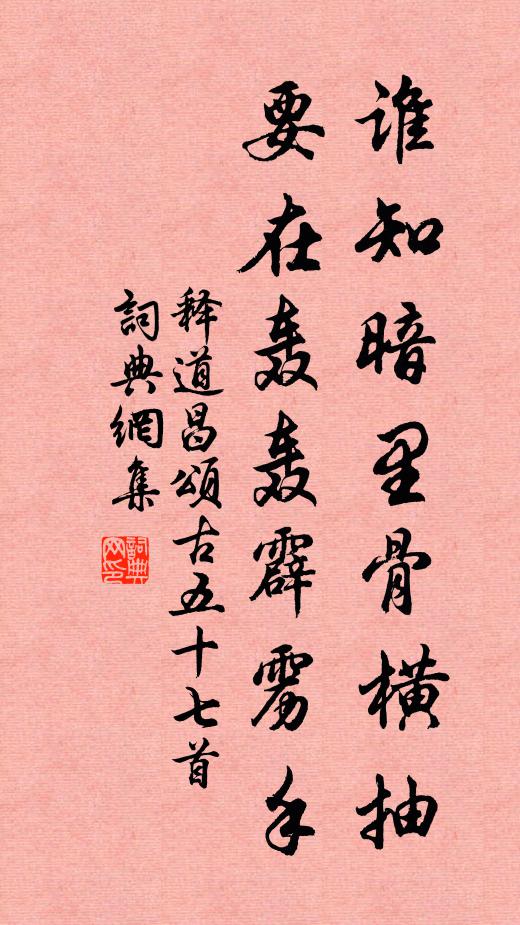 谁知暗里骨横抽
要在轰轰霹雳手
释道昌颂古五十七首
詞典網集
詞典网印